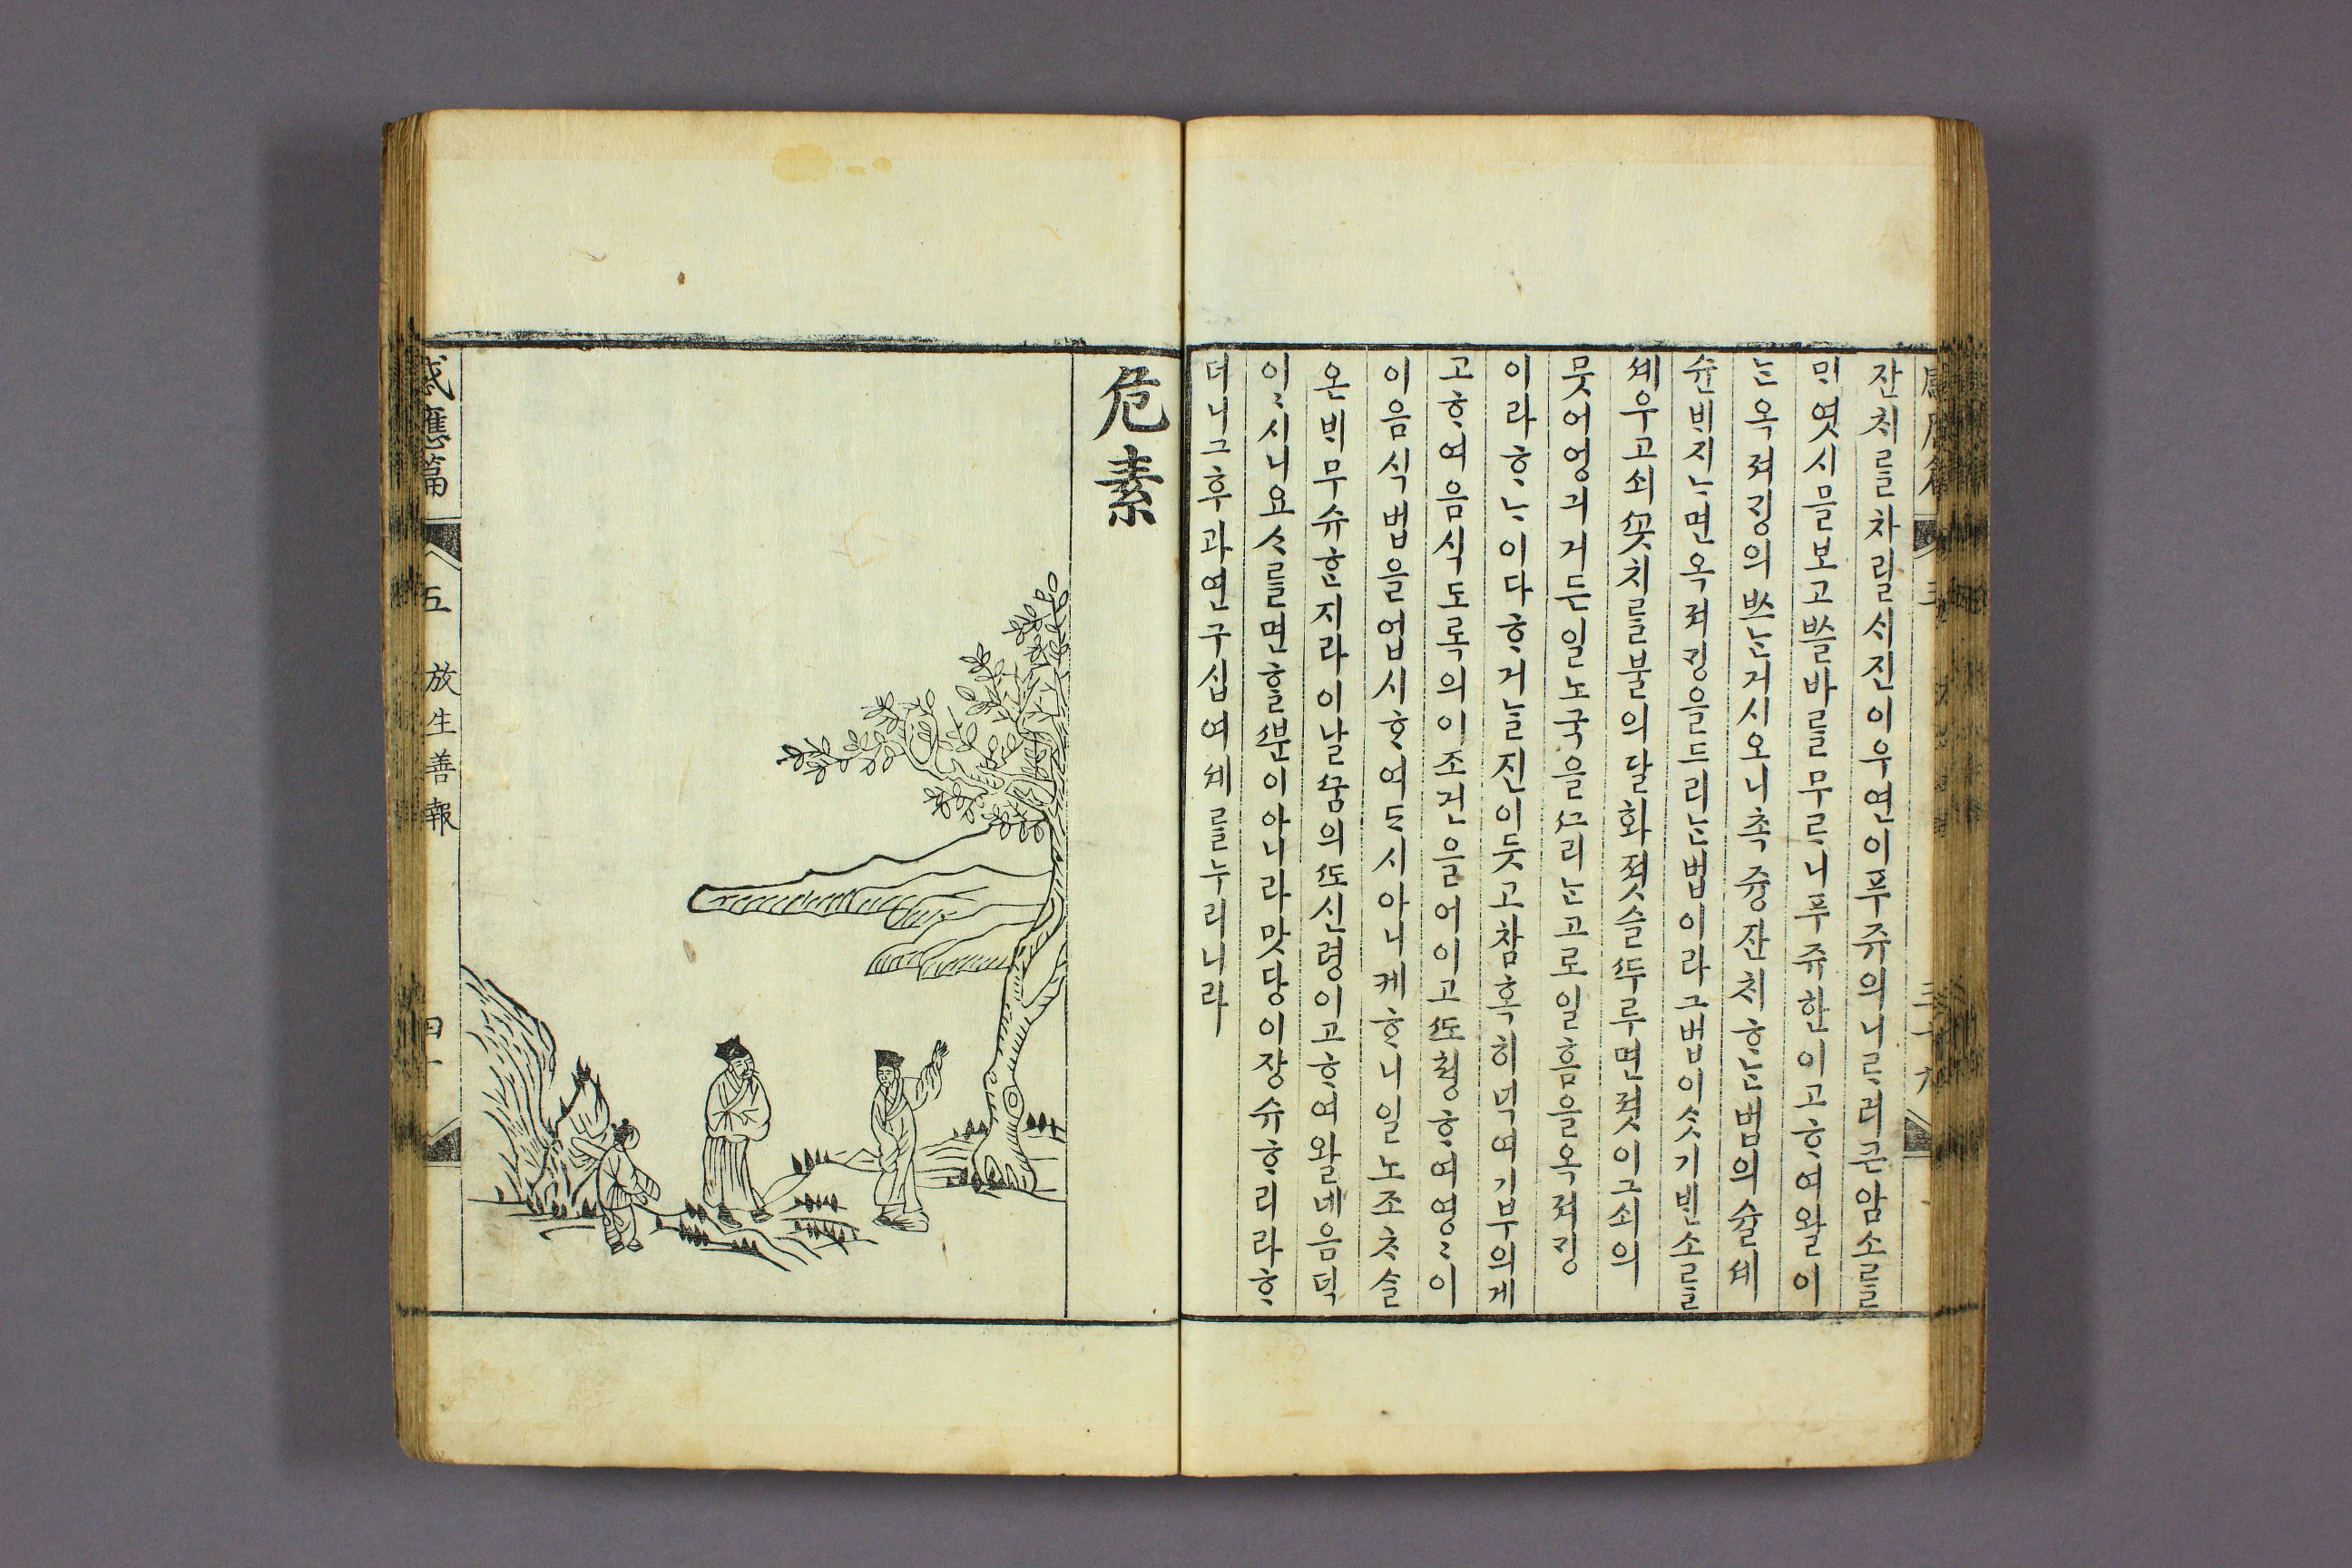 잔ᄎᆡ를차릴ᄉᆡ진이우연이푸쥬의니ᄅᆞ러큰암소를
ᄆᆡ엿시믈보고ᄡᅳᆯ바를무ᄅᆞ니푸쥬한이고ᄒᆞ여왈이
ᄂᆞᆫ옥져깅의ᄡᅳᄂᆞᆫ거시오니촉즁잔ᄎᆡᄒᆞᄂᆞᆫ법의슐세
슌ᄇᆡ지ᄂᆞ면옥져깅을드리ᄂᆞᆫ법이라그법이ᄉᆞᆺ기ᄇᆡᆫ소를
셰우고쇠ᄭᅩᆺ치를불의달화졋슬ᄯᅮ루면졋이그쇠의
뭇어엉긔거든일노국을ᄭᅳ리ᄂᆞᆫ고로일홈을옥져깅
이라ᄒᆞᄂᆞ이다ᄒᆞ거ᄂᆞᆯ진이듯고참혹히녁여기부의게
고ᄒᆞ여음식도록의이조건을어이고ᄯᅩ쳥ᄒᆞ여영〻이
이음식법을업시ᄒᆞ여드시아니케ᄒᆞ니일노조ᄎᆞ슬
온ᄇᆡ무슈ᄒᆞᆫ지라이날ᄭᅮᆷ의ᄯᅩ신령이고ᄒᆞ여왈네음덕
이〻시니요ᄉᆞ를면ᄒᆞᆯᄲᅮᆫ이아니라맛당이장슈ᄒᆞ리라ᄒᆞ
더니그후과연구십여셰를누리니라
危素
感應篇 五 放生善報 四十